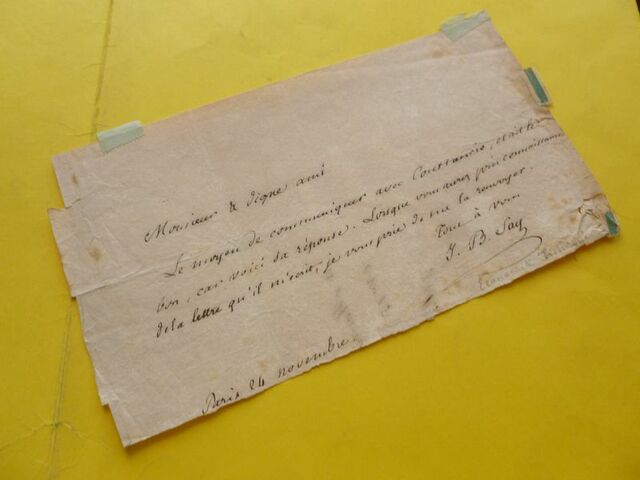 Monsieur & digne ami
Le moyen de communiquer avec Conttancio, était
bon, car voici sa réponse. Lorsque vous aurez pris connoissance
de la lettre qu'il m'écrit, je vous prie de me la renvoyer.
Tout à vous
J. B. Say
Paris 24 novembre